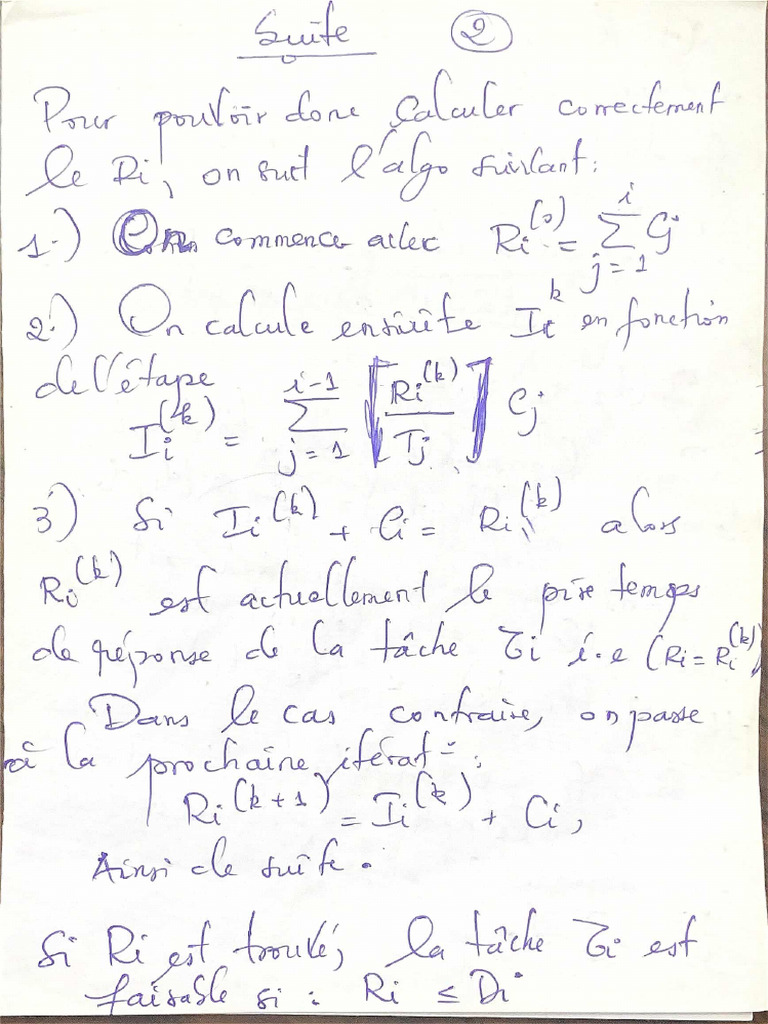 Suite 2
Pour pouvoir donc calculer correctement
le Ri, on suit l'algo suivant:
1.) On commence avec Ri^(0) = ∑_{j=1}^{i} Cj
2.) On calcule ensuite Ii^k en fonction
de l'étape
Ii^(k) = ∑_{j=1}^{i-1} ⌈Ri^(k)/Tj⌉ Cj
3) Si Ii^(k) + Ci = Ri^(k), alors
Ri^(k) est actuellement le pire temps
de réponse de la tâche τi i.e (Ri = Ri^(k))
Dans le cas contraire, on passe
à la prochaine itérat°:
Ri^(k+1) = Ii^(k) + Ci,
Ainsi de suite.
Si Ri est trouvé, la tâche τi est
faisable si : Ri ≤ Di